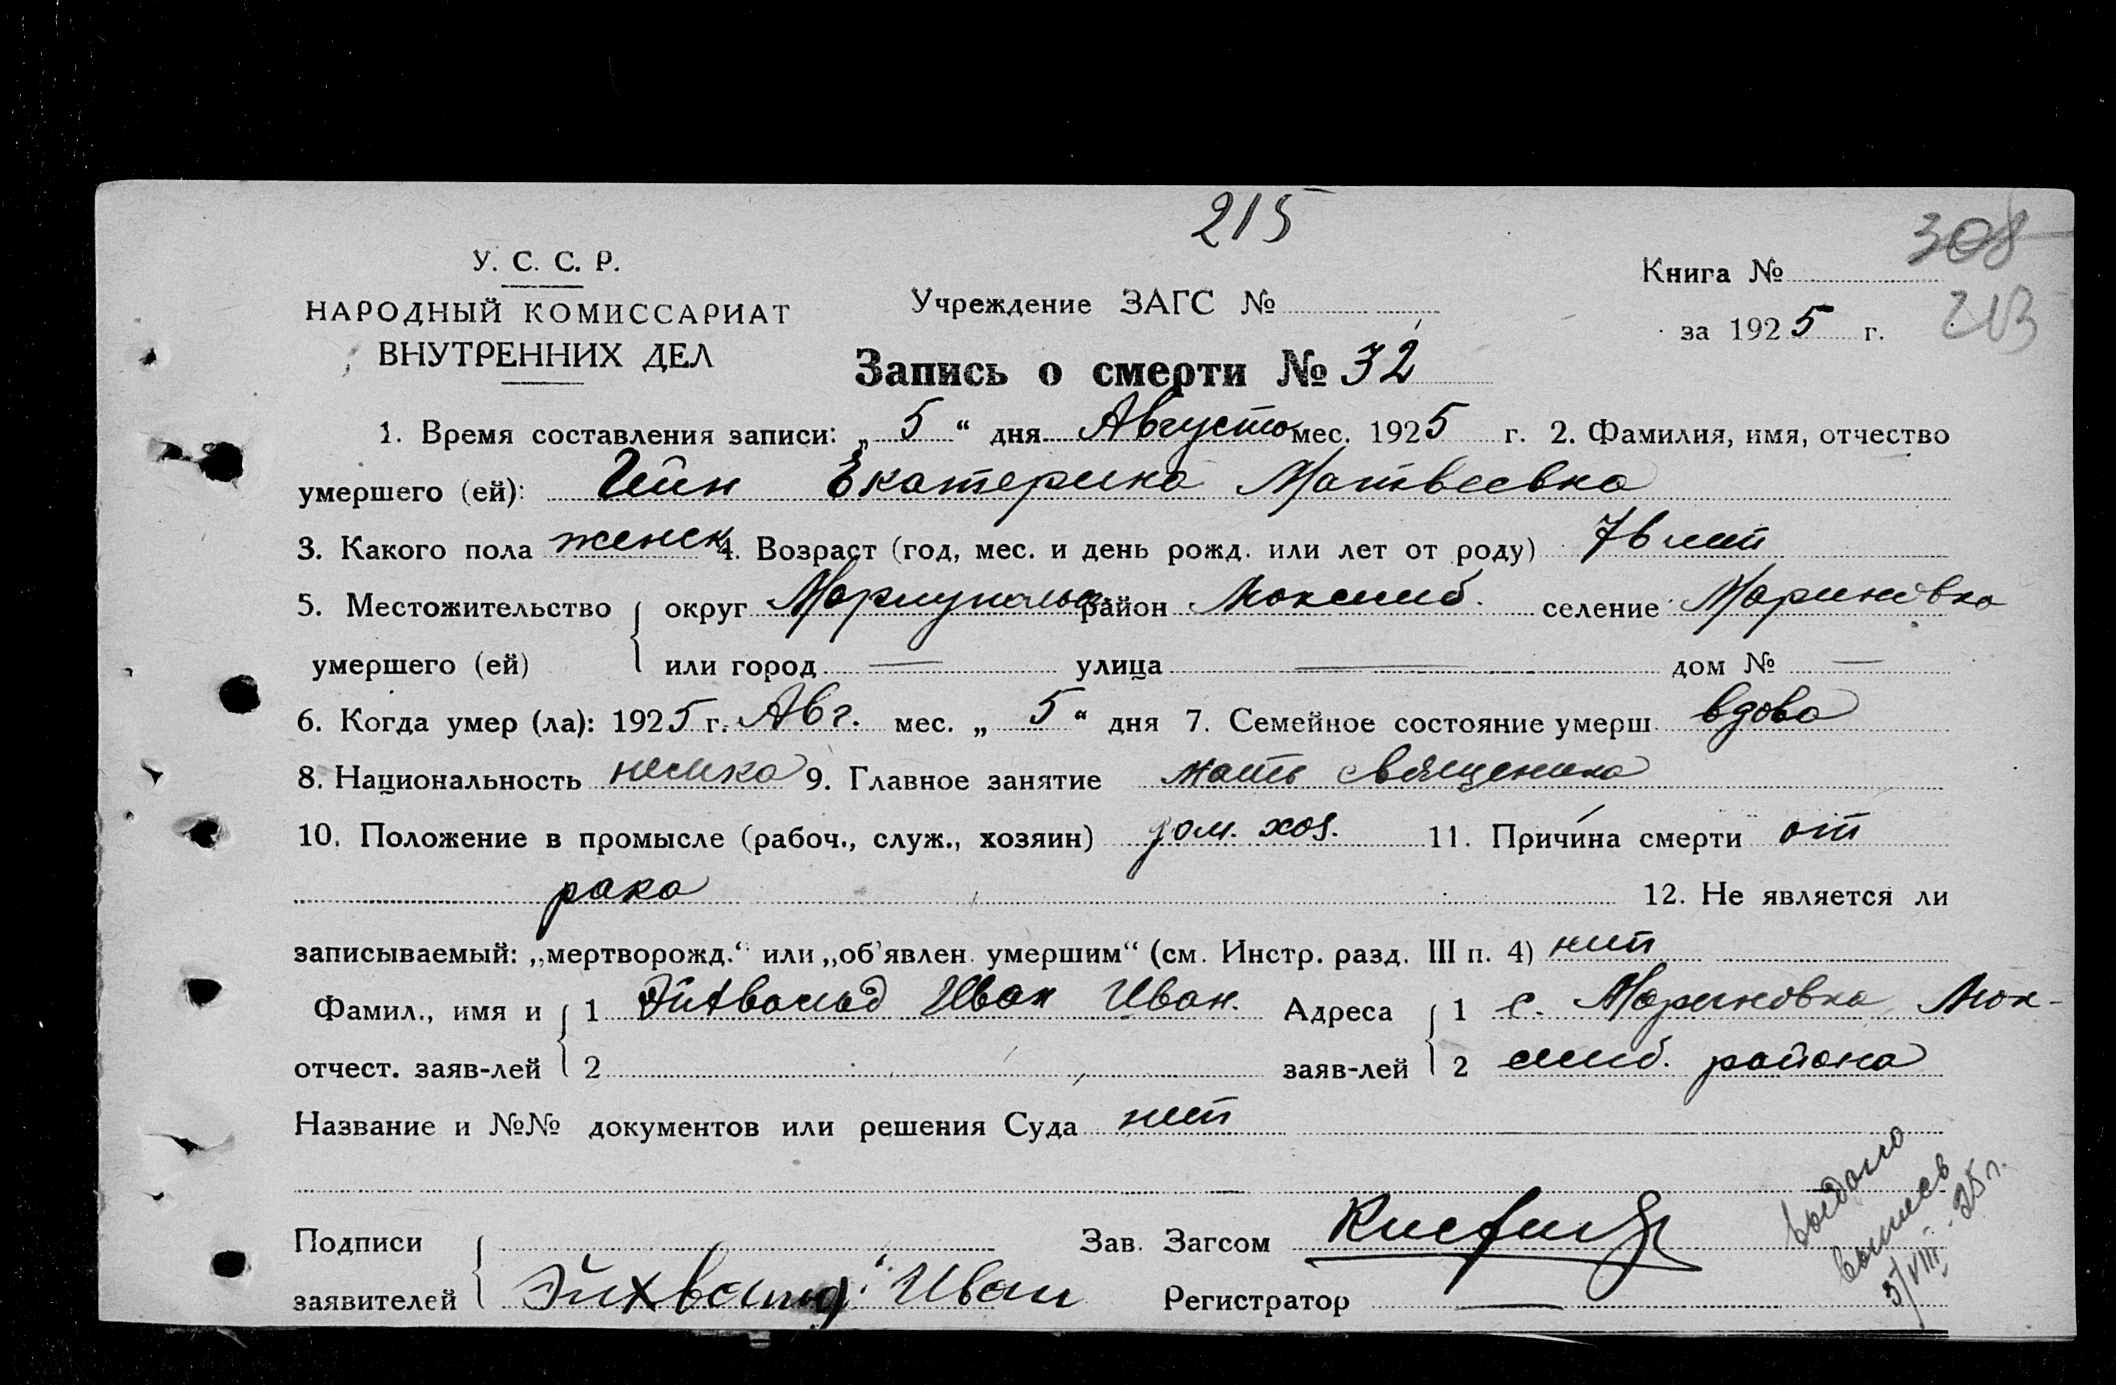 215
308
213
У. С. С. Р.
НАРОДНЫЙ КОМИССАРИАТ
ВНУТРЕННИХ ДЕЛ
Учреждение ЗАГС №
Книга №
за 1925 г.
Запись о смерти № 32
1. Время составления записи: „5“ дня Августа мес. 1925 г. 2. Фамилия, имя, отчество
умершего (ей): Екатерина Матвеевна
3. Какого пола женск 4. Возраст (год, мес. и день рожд. или лет от роду) лет
5. Местожительство округ Мариупольск район Люксемб. селение Мариновка
умершего (ей) или город — улица — дом № —
6. Когда умер (ла): 1925 г. Авг. мес. „5“ дня 7. Семейное состояние умерш. вдова
8. Национальность немка 9. Главное занятие мать священика
10. Положение в промысле (рабоч., служ., хозяин) дом. хоз. 11. Причина смерти от
рака 12. Не является ли
записываемый: „мертворожд.“ или „об'явлен умершим“ (см. Инстр. разд. III п. 4) нет
Фамил., имя и 1 Эйхвальд Иван Иван. Адреса 1 с. Мариновка Люк-
отчест. заяв-лей 2 заяв-лей 2 семб. района
Название и №№ документов или решения Суда нет
Подписи Зав. Загсом
заявителей Эйхвальд Иван Регистратор —
выдана
выпись
5/VIII 25 г.